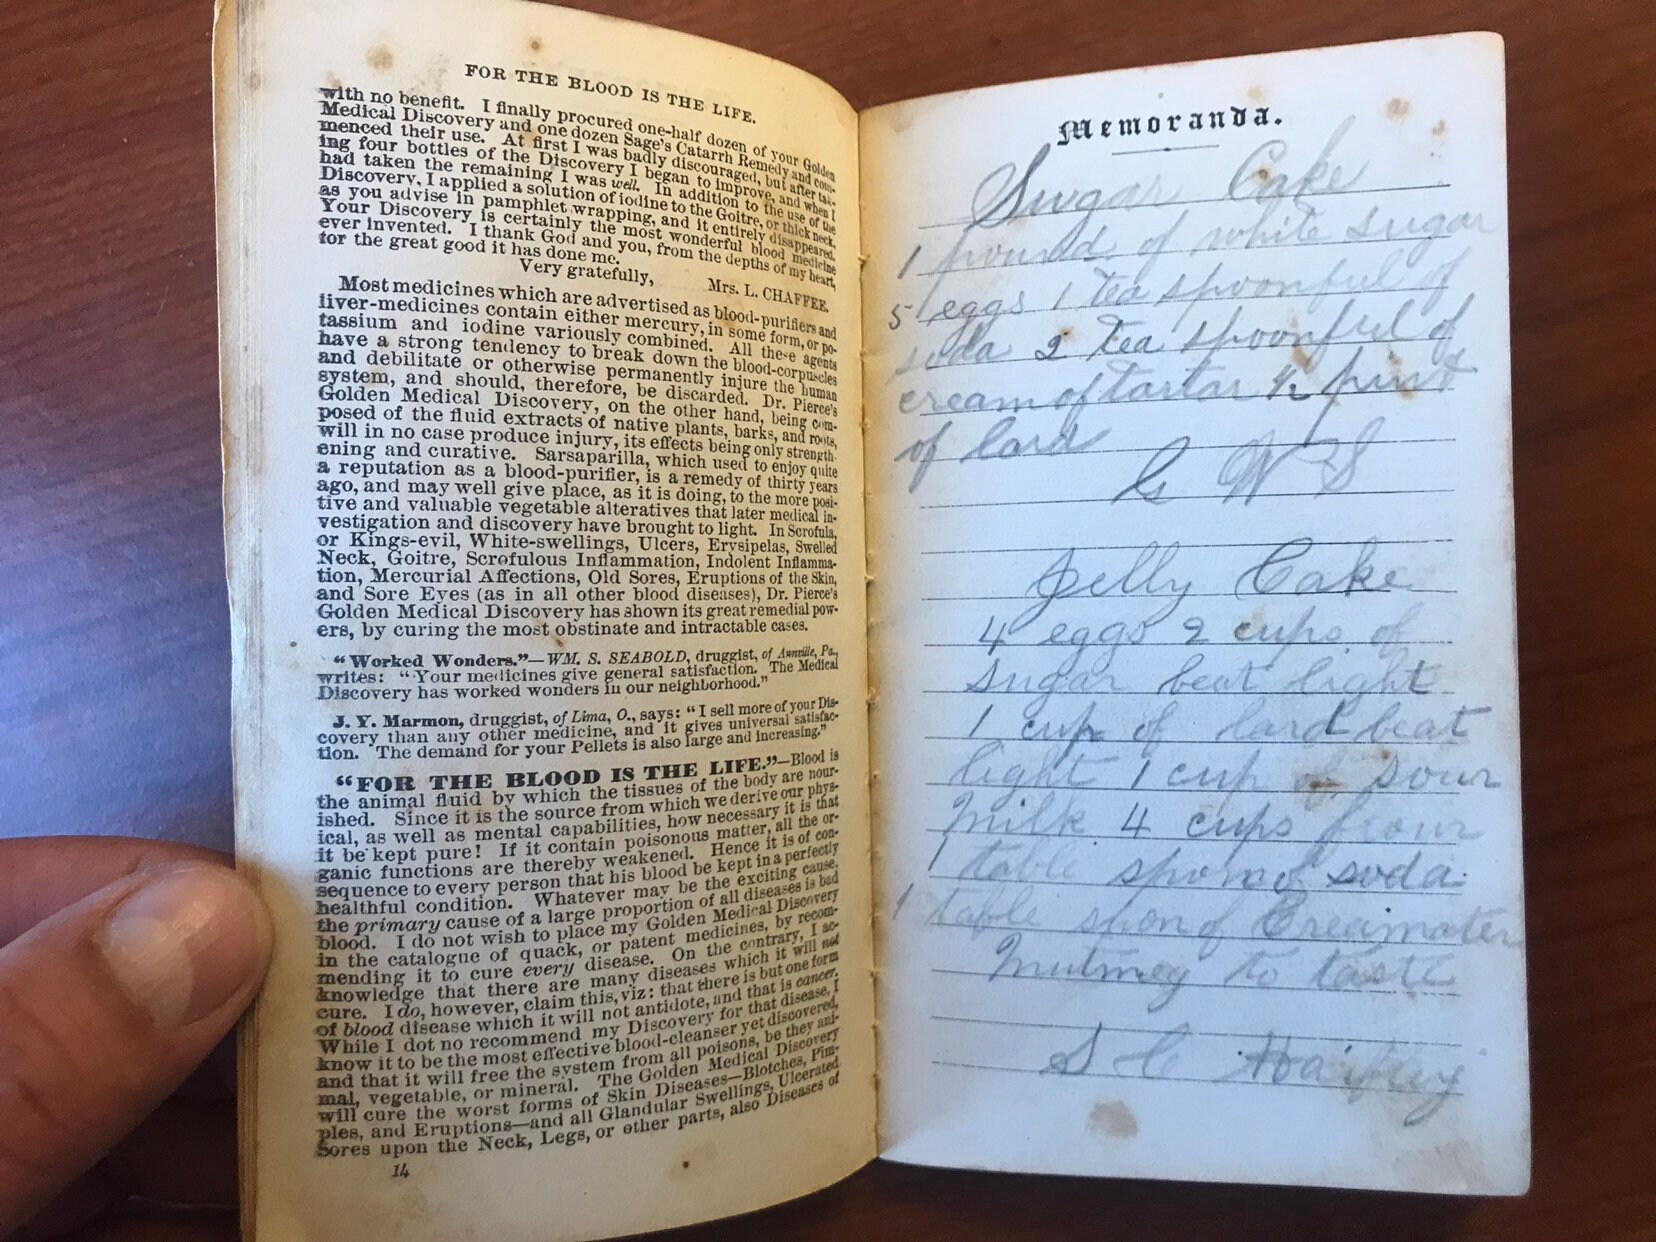 FOR THE BLOOD IS THE LIFE.
with no benefit. I finally procured one-half dozen of your Golden
Medical Discovery and one dozen Sage's Catarrh Remedy and com-
menced their use. At first I was badly discouraged, but after tak-
ing four bottles of the Discovery I began to improve, and when I
had taken the remaining I was well. In addition to the use of the
Discovery, I applied a solution of iodine to the Goitre, or thick neck,
as you advise in pamphlet wrapping, and it entirely disappeared.
Your Discovery is certainly the most wonderful blood medicine
ever invented. I thank God and you, from the depths of my heart,
for the great good it has done me.
Very gratefully, Mrs. L. CHAFFEE.
Most medicines which are advertised as blood-purifiers and
liver-medicines contain either mercury, in some form, or po-
tassium and iodine variously combined. All these agents
have a strong tendency to break down the blood-corpuscles
and debilitate or otherwise permanently injure the human
system, and should, therefore, be discarded. Dr. Pierce's
Golden Medical Discovery, on the other hand, being com-
posed of the fluid extracts of native plants, barks, and roots,
will in no case produce injury, its effects being only strength-
ening and curative. Sarsaparilla, which used to enjoy quite
a reputation as a blood-purifier, is a remedy of thirty years
ago, and may well give place, as it is doing, to the more posi-
tive and valuable vegetable alteratives that later medical in-
vestigation and discovery have brought to light. In Scrofula,
or Kings-evil, White-swellings, Ulcers, Erysipelas, Swelled
Neck, Goitre, Scrofulous Inflammation, Indolent Inflamma-
tion, Mercurial Affections, Old Sores, Eruptions of the Skin,
and Sore Eyes (as in all other blood diseases), Dr. Pierce's
Golden Medical Discovery has shown its great remedial pow-
ers, by curing the most obstinate and intractable cases.
"Worked Wonders."—WM. S. SEABOLD, druggist, of Annville, Pa.,
writes: "Your medicines give general satisfaction. The Medical
Discovery has worked wonders in our neighborhood."
J. Y. Marmon, druggist, of Lima, O., says: "I sell more of your Dis-
covery than any other medicine, and it gives universal satisfac-
tion. The demand for your Pellets is also large and increasing."
"FOR THE BLOOD IS THE LIFE."—Blood is
the animal fluid by which the tissues of the body are nour-
ished. Since it is the source from which we derive our phys-
ical, as well as mental capabilities, how necessary it is that
it be kept pure! If it contain poisonous matter, all the or-
ganic functions are thereby weakened. Hence it is of con-
sequence to every person that his blood be kept in a perfectly
healthful condition. Whatever may be the exciting cause,
the primary cause of a large proportion of all diseases is bad
blood. I do not wish to place my Golden Medical Discovery
in the catalogue of quack, or patent medicines, by recom-
mending it to cure every disease. On the contrary, I ac-
knowledge that there are many diseases which it will not
cure. I do, however, claim this, viz: that there is but one form
of blood disease which it will not antidote, and that is cancer.
While I dot no recommend my Discovery for that disease, I
know it to be the most effective blood-cleanser yet discovered,
and that it will free the system from all poisons, be they ani-
mal, vegetable, or mineral. The Golden Medical Discovery
will cure the worst forms of Skin Diseases—Blotches, Pim-
ples, and Eruptions—and all Glandular Swellings, Ulcerated
Sores upon the Neck, Legs, or other parts, also Diseases of
14
Memoranda.
Sugar Cake
1 pound of white sugar
5 eggs 1 tea spoonful of
soda 2 tea spoonful of
cream of tartar 1/2 pint
of lard
G W S
Jelly Cake
4 eggs 2 cups of
sugar beat light
1 cup of lard beat
light 1 cup of sour
milk 4 cups flour
1 table spoon of soda
1 table spon of Creamater
Nutmeg to taste
S C